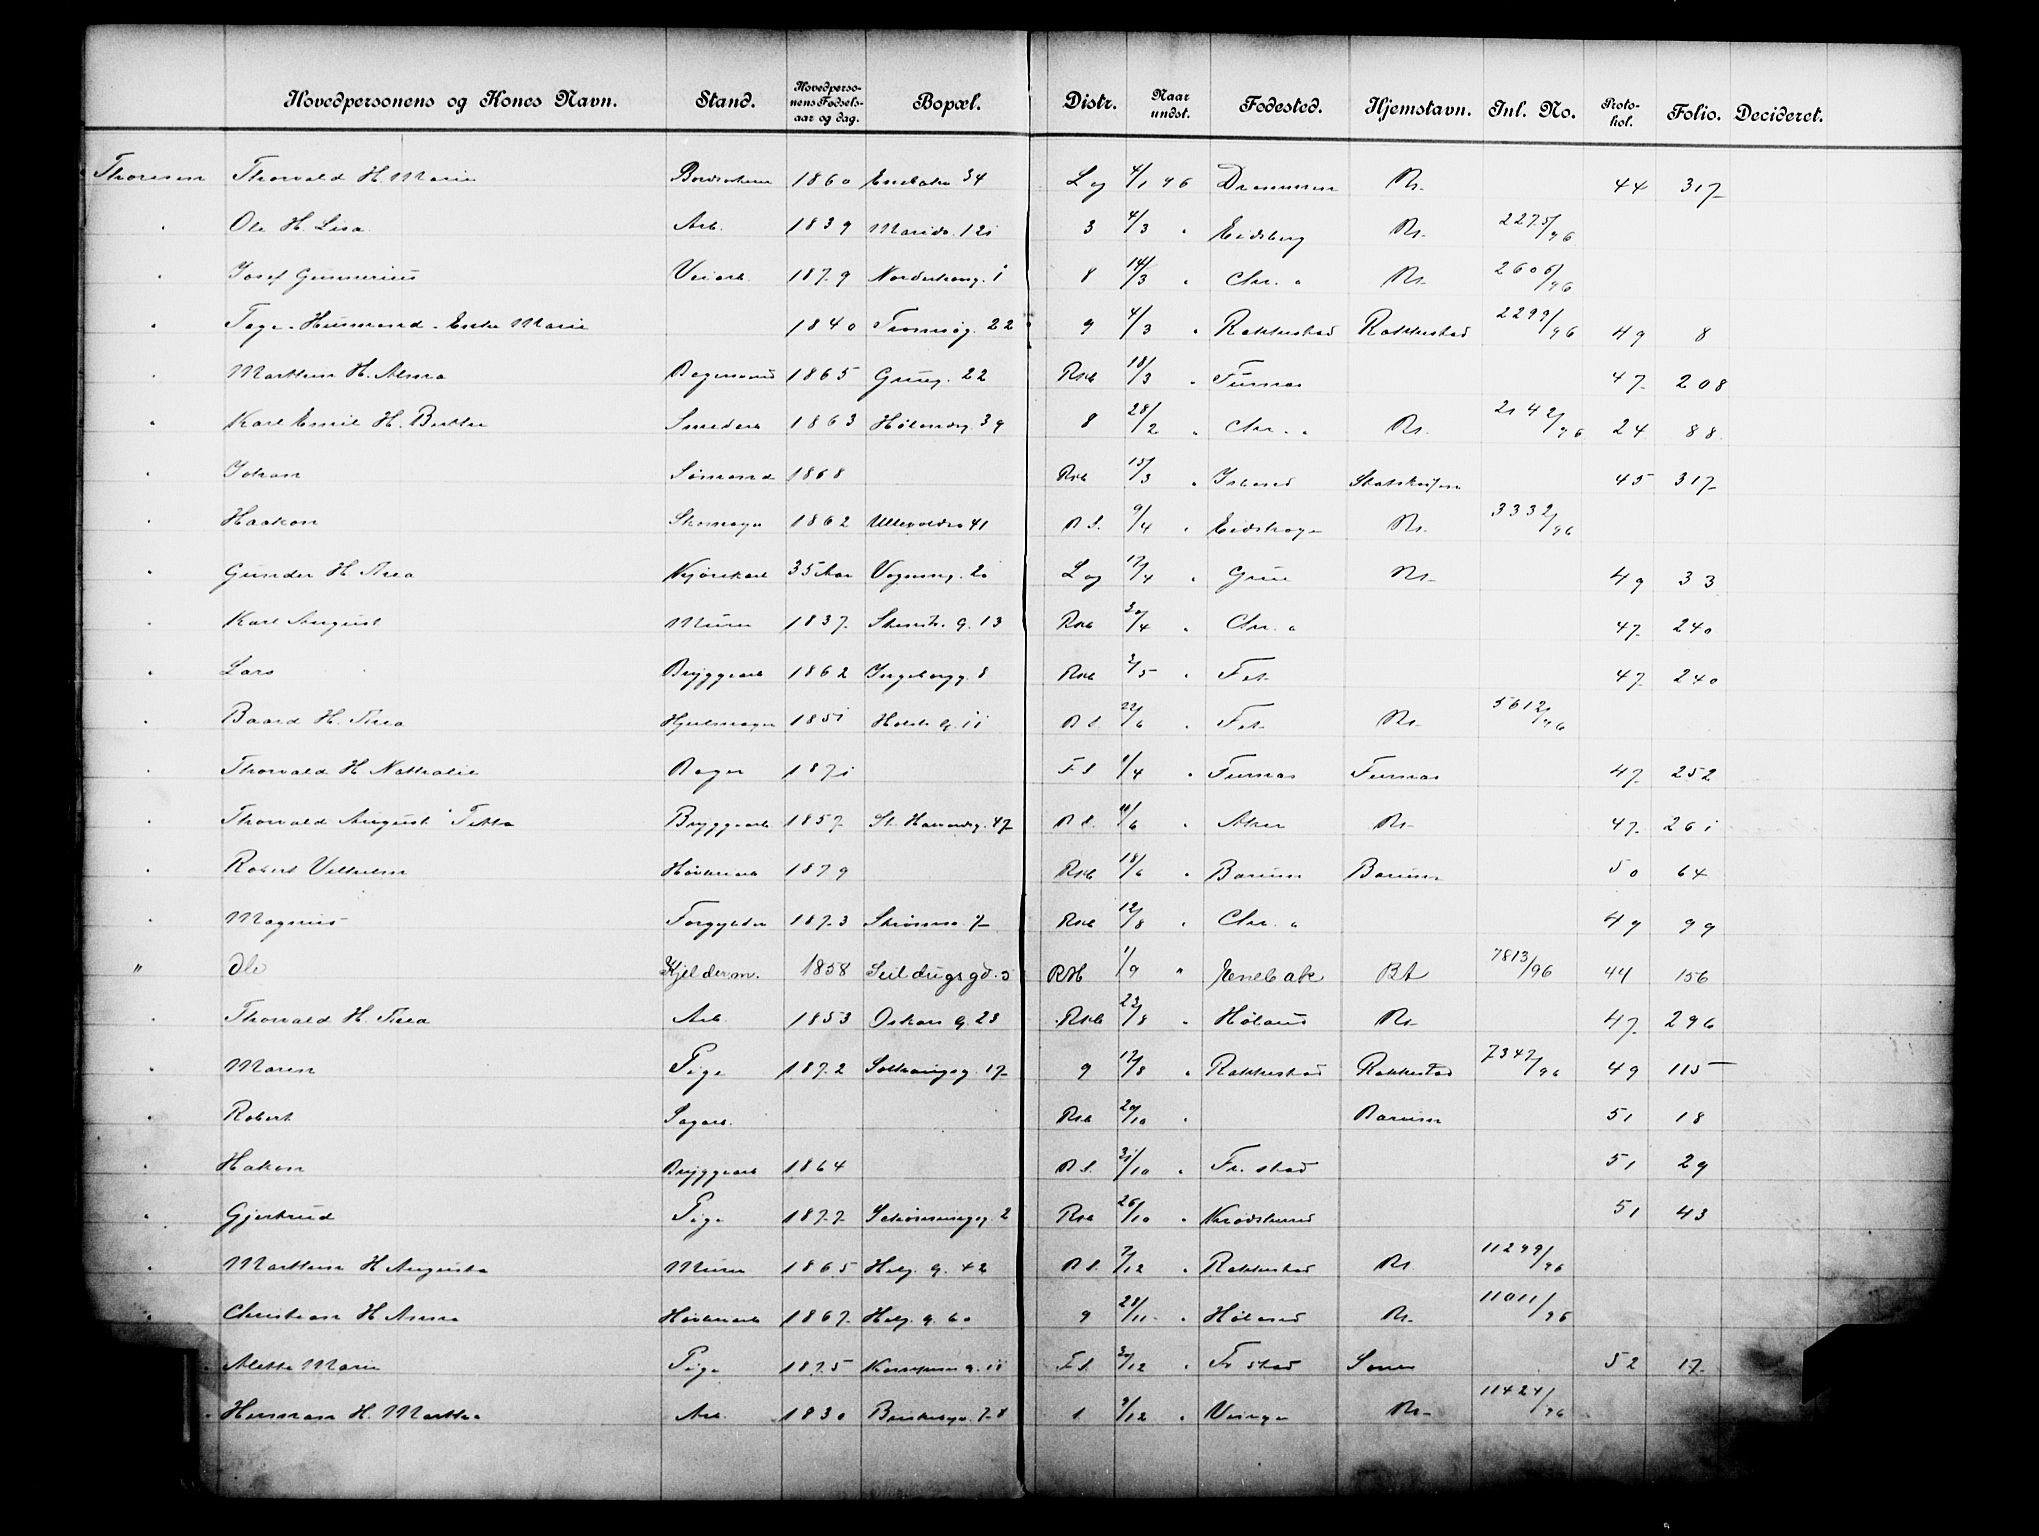 Hovedpersonens og Kones Navn. Stand. Hovedperso-nens Fødsels-aar og dag. Bopæl. Distr. Naar undst. Fødested. Hjemstavn. Inl. No. Proto-kol. Folio. Decideret.
Thoresen Thorvald H. Marie 1860 Enebakv 34 Log 4/1 96 Drammen Kr. 44 317
" Ole H. Lisa Arb. 1839 Marido. 121 3 4/3 " Eidsberg Kr. 2275/96
" Josef Gunnerius Veiarb. 1879 1 8 14/3 " Chr. a Kr. 2606/96
" Husmand. Enke Marie 1840 Tromsøg. 22 9 4/3 " Rakkestad Rakkestad 2299/96 49 8
" Marthin H. Alma Bogermand 1865 Grung. 22 Rkb 18/3 " Furnæs 47 208
" Karl Emil H. Berthe Smedarb 1863 Hølandsg. 39 8 28/2 " Chr. a Kr. 2142/96 24 88
" Johan Sømand 1868 Rkb 15/3 " 45 317
" Haakon Skomager 1862 Ullevoldsv 41 B S. 9/4 " Eidskoge Kr. 3332/96
" Gunder H. Anea Kjørekarl 35 Aar Vognmg. 20 Log 17/4 " Grue Kr. 49 33
" Karl August Murer 1837 Stenstr. g. 13 Rkb 30/4 " Chr. a 47 240
" Lars Bryggearb 1862 Ingeborgg. 8 Rkb 2/5 " Fet 47 240
" Baard H. Thea Hjulmager 1851 Holst g. 11 B S. 22/6 " Fet Kr. 5612/96
" Thorvald H Nathalie Bager 1871 F S 1/4 " Furnæs Furnæs 47 252
" Thorvald August Bryggearb 1857 St. Halvardsg. 47 B S. 11/6 " Aker Kr. 47 261
" Robert Vilhelm Høvleriarb 1879 Rkb 18/6 " Bærum Bærum 50 64
" Magnus Forgylder 1873 Strømsv. 7 Rkb 12/8 " Chr. a 49 99
" Ole Kjelderm. 1858 Seildugsgd. 5 RKb 1/9 " Enebak Kr 7813/96 44 156
" Thorvald H. Thea Arb. 1853 Oskars g. 23 Rkb 23/8 " Høland Kr. 47 296
" Maren Pige 1872 17 9 17/8 " Rakkestad Rakkestad 7347/96 49 115
" Robert Sagarb. Rkb 20/10 " Bærum 51 18
" Hakon Bryggearb 1864 B S. 31/10 " Fr. stad 51 29
" Gjertrud Pige 1877 Schønningsg. 2 Rkb 26/10 " Krødsherred 51 43
" Marthin H Augusta Murer 1865 Helg. g. 42 B S. 7/12 " Rakkestad Kr. 11299/96
" Christian H Anna Høvleriarb 1867 Helg. g. 60 9 28/11 " Høland Kr. 11011/96
" Alette Marie Pige 1875 g. 11 F S. 30/12 " Fr stad Soner 52 17
" Herman H. Marthe Arb. 1830 78 1 9/12 " Vinge Kr. 11424/96